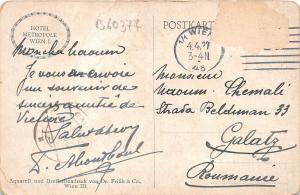 HOTEL
METROPOLE
WIEN I.
B60377
POSTKARTE
1/1 WIEN
4.4.27
3-4N
Mon cher Naoum
Je vous envoie
un souvenir de
sincère amitié de
Vienne
Salvator
Monsieur
Naoum Chemali
Strada Beldiman 33
Galatz
Roumanie
Aquarell und Dreifarbendruck von Dr. Feilik & Co.
Wien III.